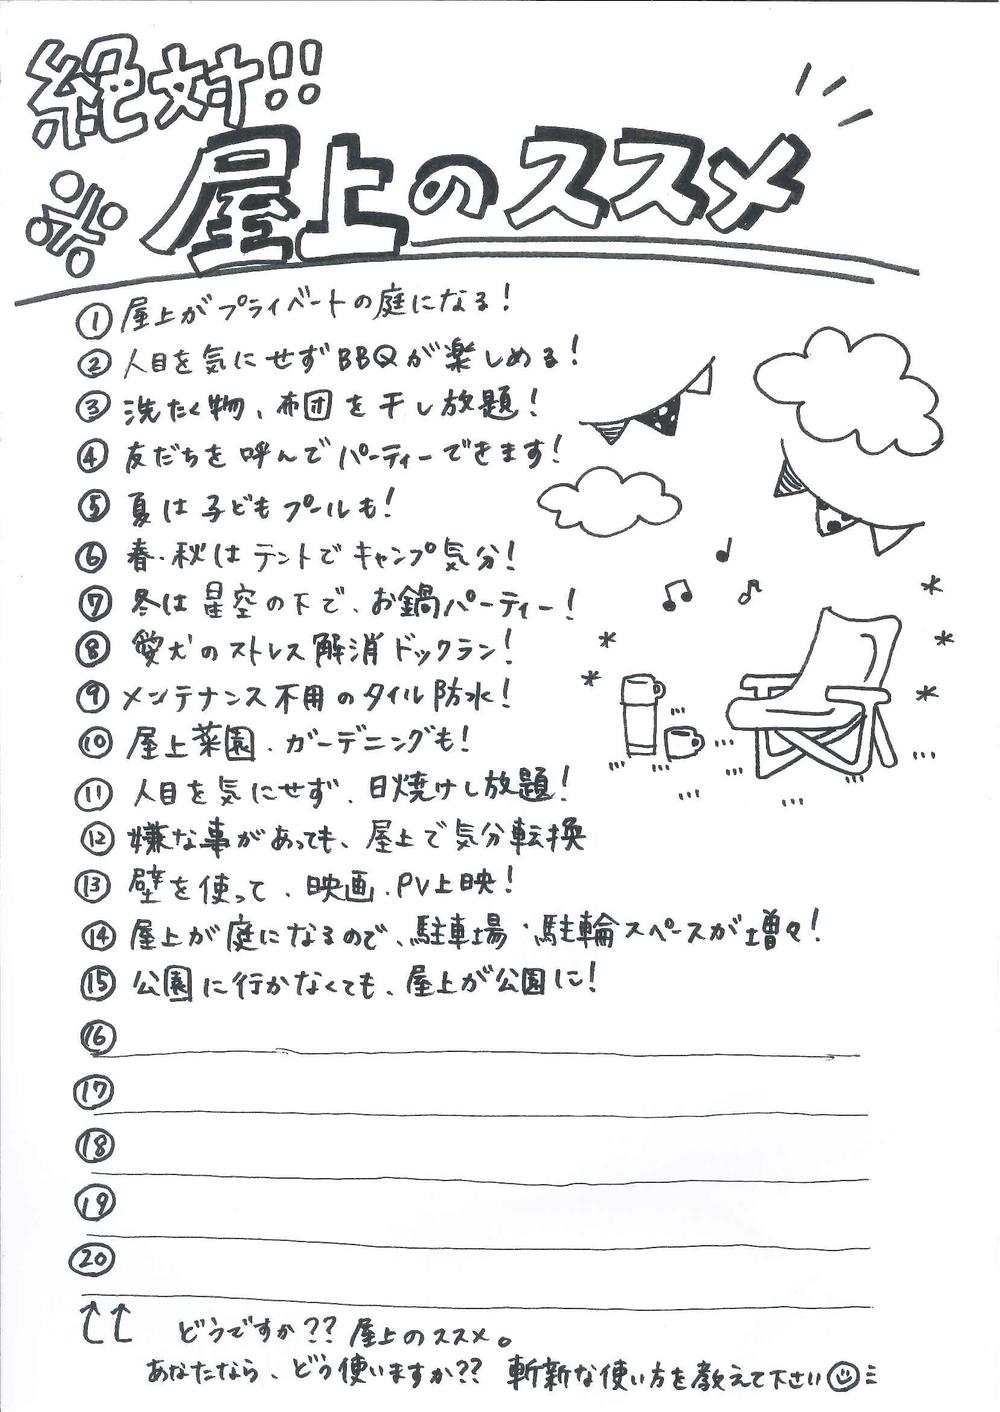 絶対!!
※屋上のススメ
①屋上がプライベートの庭になる！
②人目を気にせずBBQが楽しめる！
③洗たく物、布団を干し放題！
④友だちを呼んでパーティーできます！
⑤夏は子どもプールも！
⑥春・秋はテントでキャンプ気分！
⑦冬は星空の下で、お鍋パーティー！
⑧愛犬のストレス解消ドックラン！
⑨メンテナンス不用のタイル防水！
⑩屋上菜園、ガーデニングも！
⑪人目を気にせず、日焼けし放題！
⑫嫌な事があっても、屋上で気分転換
⑬壁を使って、映画、PV上映！
⑭屋上が庭になるので、駐車場・駐輪スペースが増々！
⑮公園に行かなくても、屋上が公園に！
⑯
⑰
⑱
⑲
⑳
どうですか??屋上のススメ。
あなたなら、どう使いますか??斬新な使い方を教えて下さい